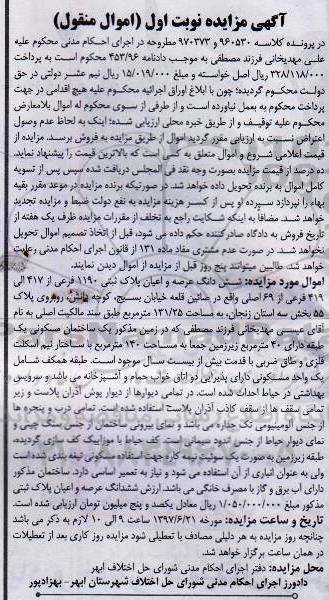 آگهی مزایده نوبت اول (اموال منقول)
در پرونده کلاسه ۹۶۰۵۳۰ و ۹۷۰۳۷۳ مطروحه در اجرای احکام مدنی محکوم علیه
علی مهدیخانی فرزند مصطفی به موجب دادنامه ۴۵۳/۹۶ محکوم به پرداخت
۳۲۸/۱۱۸/۰۰۰ ریال اصل خواسته و مبلغ ۱۵/۰۱۹/۰۰۰ ریال نیم عشر دولتی در حق
دولت محکوم گردیده؛ چون با ابلاغ اوراق اجرائیه محکوم علیه هیچ اقدامی در جهت
پرداخت محکوم به بعمل نیاورده است و از طرفی از سوی محکوم له اموال بلامعارض
محکوم علیه توقیف و از طریق خبره محلی ارزیابی شده؛ اینک به لحاظ عدم وصول
اعتراض نسبت به ارزیابی مقرر گردید اموال از طریق مزایده به فروش برسد. مزایده از
قیمت اعلامی شروع و اموال متعلق به کسی است که بالاترین قیمت را پیشنهاد نماید.
ده درصد از قیمت مزایده بصورت وجه نقد فی المجلس دریافت شده سپس پس از تسویه
کامل اموال به برنده تحویل داده خواهد شد. در صورتیکه برنده مزایده در موعد مقرر بقیه
بهاء را نپردازد سپرده او پس از کسر هزینه مزایده به نفع دولت ضبط و مزایده تجدید
خواهد شد. مضافا به اینکه شکایت راجع به تخلف از مقررات مزایده ظرف یک هفته از
تاریخ فروش به دادگاه صادرکننده حکم داده می شود، قبل از اتخاذ تصمیم اموال تحویل
نخواهد شد. در صورت عدم مشتری مفاد ماده ۱۳۱ از قانون اجرای احکام مدنی رعایت
خواهد شد. طالبین میتوانند پنج روز قبل از مزایده از اموال دیدن نمایند.
اموال مورد مزایده: شش دانگ عرصه و اعیان پلاک ثبتی ۱۱۹۰ فرعی از ۴۱۷ الی
۴۱۹ فرعی از ۶۹ اصلی واقع در صائین قلعه خیابان بسیج، کوچه دانش، روبروی پلاک
۵۵ بخش سه استان زنجان، به مساحت ۱۳۱/۲۵ مترمربع طبق سند مالکیت اصلی به نام
آقای عیسی مهدیخانی فرزند مصطفی که در زمین مذکور یک ساختمان مسکونی یک
طبقه دارای ۴۰ مترمربع زیرزمین جمعا به مساحت ۱۴۰ مترمربع با ساختار نیم اسکلت
فلزی و طاق ضربی با قدمت بیش از بیست سال موجود است. طبقه همکف شامل
یک واحد مسکونی دارای پذیرایی دو اتاق خواب حمام و آشپزخانه می باشد و سرویس
بهداشتی در حیاط احداث شده است. در تمامی دیوارها از دیوار پوش آذران پلاست و زیر
تمامی سقف ها از سقف کاذب آذران پلاست استفاده شده است. تمامی درب و پنجره ها
از جنس آلومینیومی تک جداره می باشد و نمای بیرونی ساختمان از جنس سنگ چینی و
نمای دیوار حیاط از جنس اندود سیمانی است. کف حیاط با موزاییک کف سازی گردیده،
طبقه زیرزمین به صورت یک سوئیت نیمه کاره جهت استفاده مسکونی تیغه بندی شده است
ولی به عنوان انباری از آن استفاده می شود و نیاز به تعمیر اساسی دارد. ساختمان مذکور
دارای آب برق و گاز با مصرف خانگی می باشد. ارزش ششدانگ عرصه و اعیان پلاک ثبتی
مذکور مبلغ ۱/۰۵۰/۰۰۰/۰۰۰ ریال معادل یکصد و پنج میلیون تومان ارزیابی شده است.
تاریخ و ساعت مزایده: مورخه ۱۳۹۷/۶/۲۱ ساعت ۹ الی ۱۰ لازم به ذکر می باشد
چنانچه روز مزایده به هر دلیلی مصادف با تعطیلی شود مزایده روز کاری بعد از تعطیلات
در همان ساعت برگزار خواهد شد.
محل مزایده: دفتر اجرای احکام مدنی شورای حل اختلاف ابهر
دادورز اجرای احکام مدنی شورای حل اختلاف شهرستان ابهر - بهزادپور